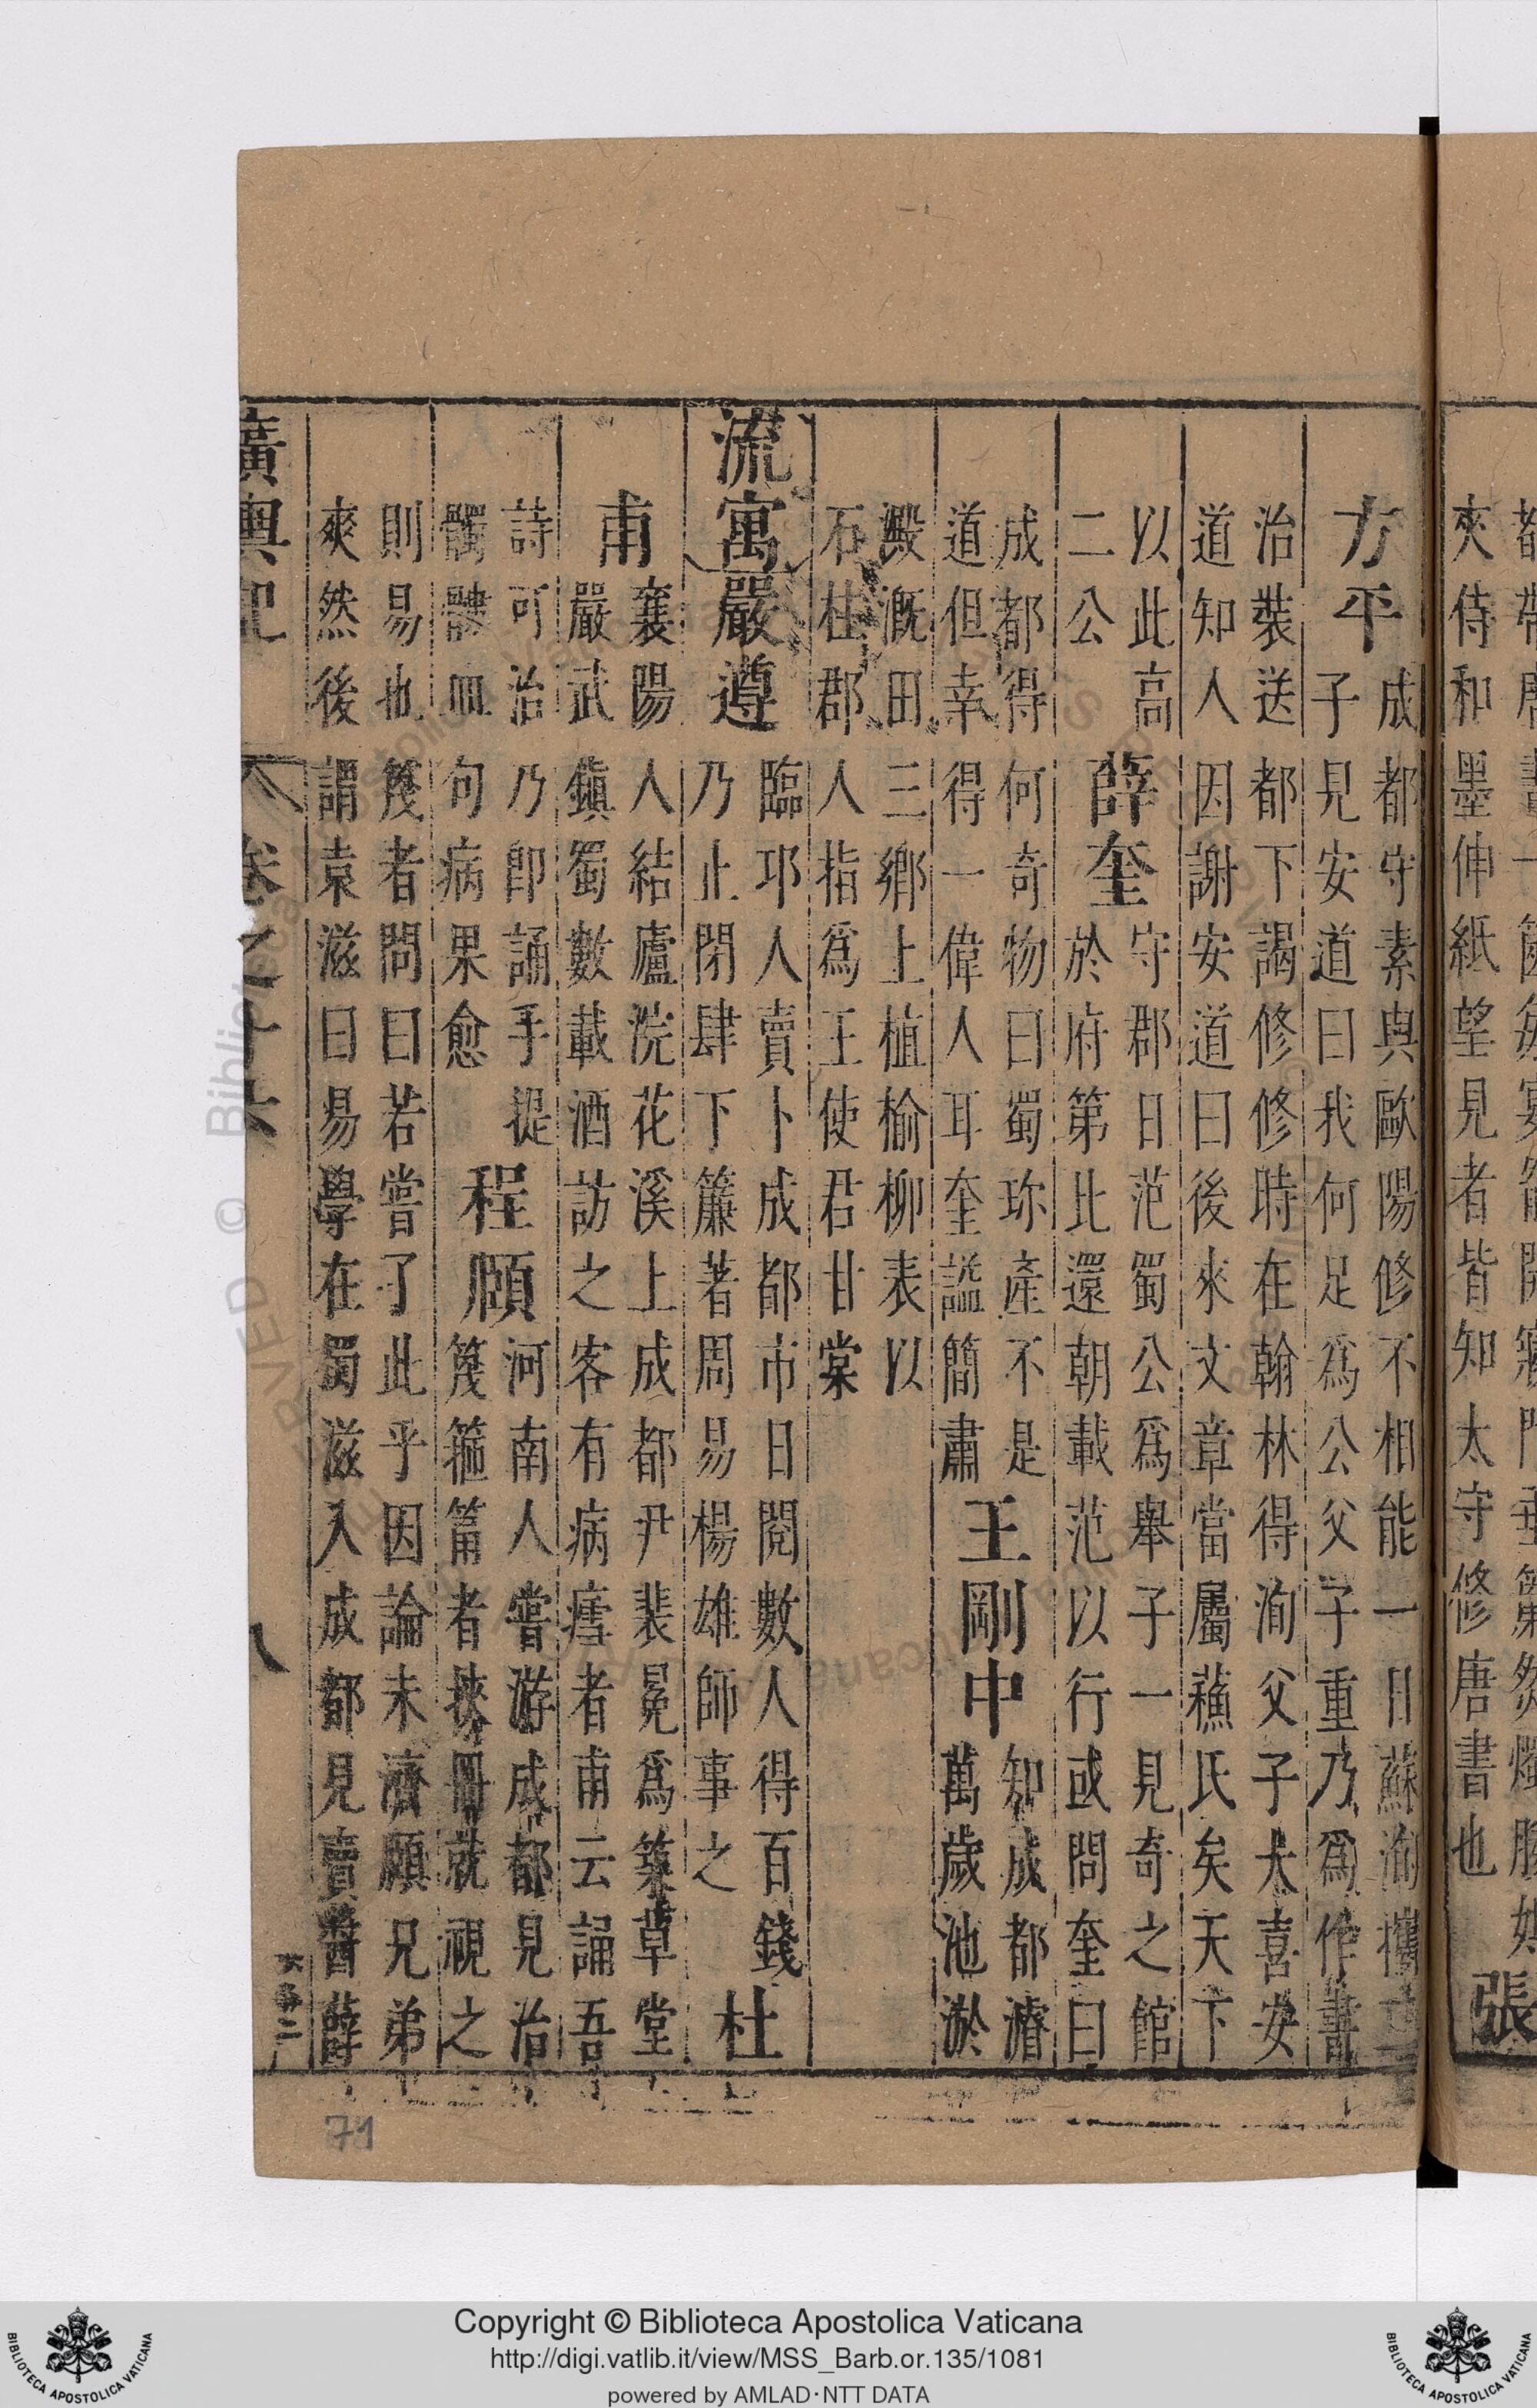 夾侍和墨伸紙望見者皆知太守修唐書也
張
方平
成都守素與歐陽修不相能一日蘇洵攜二
子見安道曰我何足爲公父子重乃爲作書
治裝送都下謁修修時在翰林得洵父子大喜安
道知人因謝安道曰後來文章當屬蘓氏矣天下
以此高
二公
薛奎
守郡日范蜀公爲舉子一見奇之館
於府第比還朝載范以行或問奎曰
成都得何奇物曰蜀珎產不是
道但幸得一偉人耳奎謚簡肅
王剛中
知成都濬
萬歲池淤
澱溉田三鄉上植榆柳表以
石柱郡人指爲王使君甘棠
流寓
嚴遵
臨邛人賣卜成都市日閱數人得百錢
乃止閉肆下簾著周易楊雄師事之
杜
甫
襄陽人結廬浣花溪上成都尹裴冕爲築草堂
嚴武鎮蜀數載酒訪之客有病瘧者甫云誦吾
詩可治乃即誦手提
髑髏血句病果愈
程頤
河南人嘗游成都見治
篾箍筩者挾冊就視之
則易也篾者問曰若嘗了此乎因論未濟頤兄弟
爽然後謂袁滋曰易學在蜀滋入成都見賣醬薛
廣輿記
卷之十六
八
71
Copyright © Biblioteca Apostolica Vaticana
http://digi.vatlib.it/view/MSS_Barb.or.135/1081
powered by AMLAD·NTT DATA
BIBLIOTECA APOSTOLICA VATICANA
BIBLIOTECA APOSTOLICA VATICANA